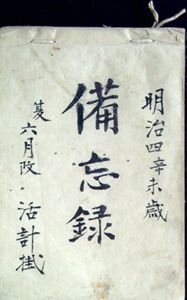 明治四辛未歳
備忘録
六月改
活計掛